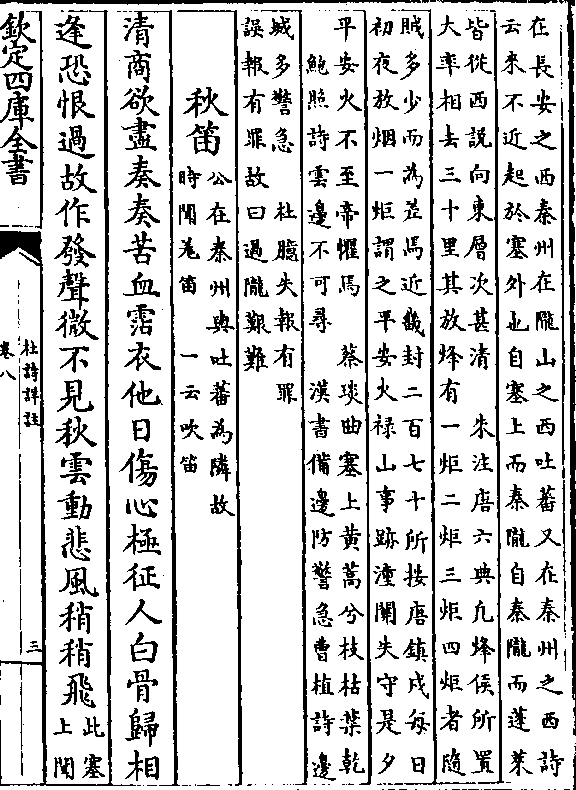 在長安之西秦州在隴山之西吐蕃又在秦州之西詩
云來不近起於塞外也自塞上而秦隴自秦隴而蓬萊
皆從西説向東層次甚清　朱注唐六典凢烽候所置
大率相去三十里其放烽有一炬二炬三炬四炬者隨
賊多少而為差焉近畿封二百七十所按唐鎮戍每日
初夜放烟一炬謂之平安火禄山事跡潼關失守是夕
平安火不至帝懼焉　蔡琰曲塞上黄蒿兮枝枯葉乾
鮑照詩雲邊不可尋　漢書備邊防警急曹植詩邊
城多警急　杜臆失報有罪
誤報有罪故曰過隴艱難
秋笛
公在秦州與吐蕃為隣故
時聞羌笛　一云吹笛
清商欲盡奏奏苦血霑衣他日傷心極征人白骨歸相
逢恐恨過故作發聲微不見秋雲動悲風稍稍飛
此塞
上聞
欽定四庫全書
杜詩詳註
卷八
三